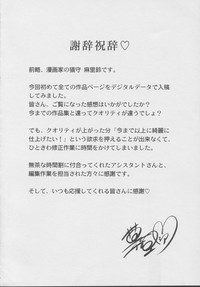 謝辞祝辞♡
前略、漫画家の猫守 麻里鈴です。
今回初めて全ての作品ページをデジタルデータで入稿
してみました。
皆さん、ご覧になった感想はいかがでしたか？
今までの作品集と違ってクオリティが違うでしょ？
でも、クオリティが上がった分「今まで以上に綺麗に
仕上げたい！」という欲求を押さえられなくて、
ひときわ修正作業に時間をかけてしまいました。
無茶な時間割に付合ってくれたアシスタントさんと、
編集作業を担当された方々に感謝です。
そして、いつも応援してくれる皆さんに感謝♡